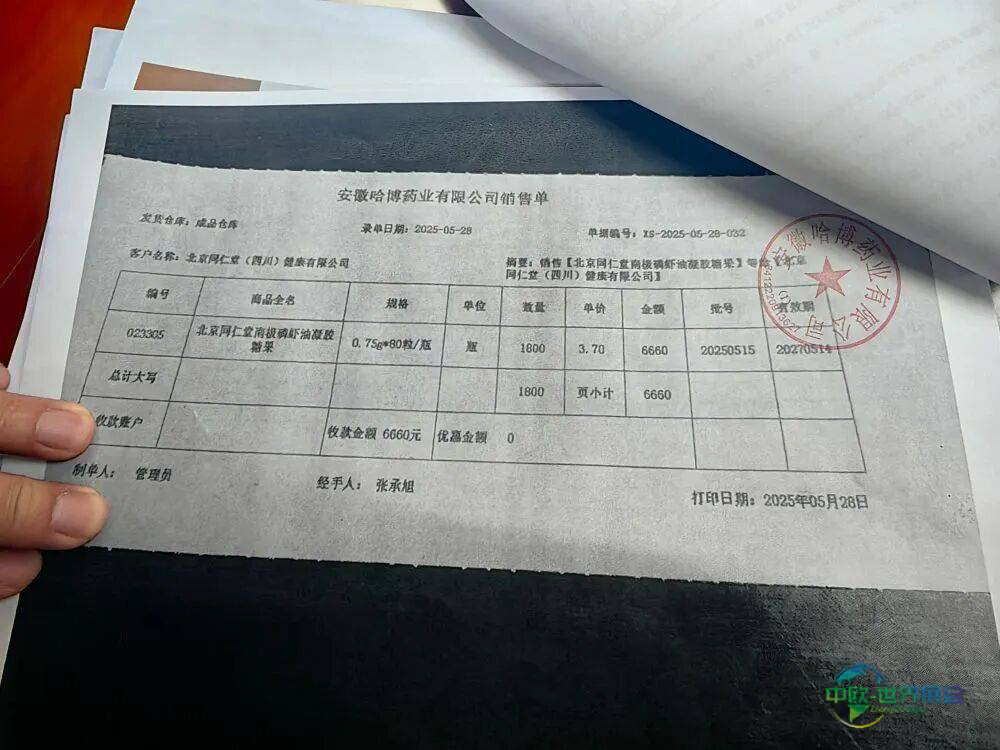 安徽哈博药业有限公司销售单
发货仓库：成品仓库 录单日期：2025-05-28 单据编号：XS-2025-05-28-032
客户名称：北京同仁堂（四川）健康有限公司 摘要：销售【北京同仁堂南极磷虾油凝胶糖果】等
同仁堂（四川）健康有限公司】
编号 商品全名 规格 单位 数量 单价 金额 批号 有效期
023305 北京同仁堂南极磷虾油凝胶 0.75g*80粒/瓶 瓶 1800 3.70 6660 20250515 20270514
糖果
总计大写 1800 页小计 6660
收款账户 收款金额 6660元 优惠金额 0
制单人： 管理员 经手人： 张承旭 打印日期：2025年05月28日
安徽哈博药业有限公司
(1)
中欧-世界展会